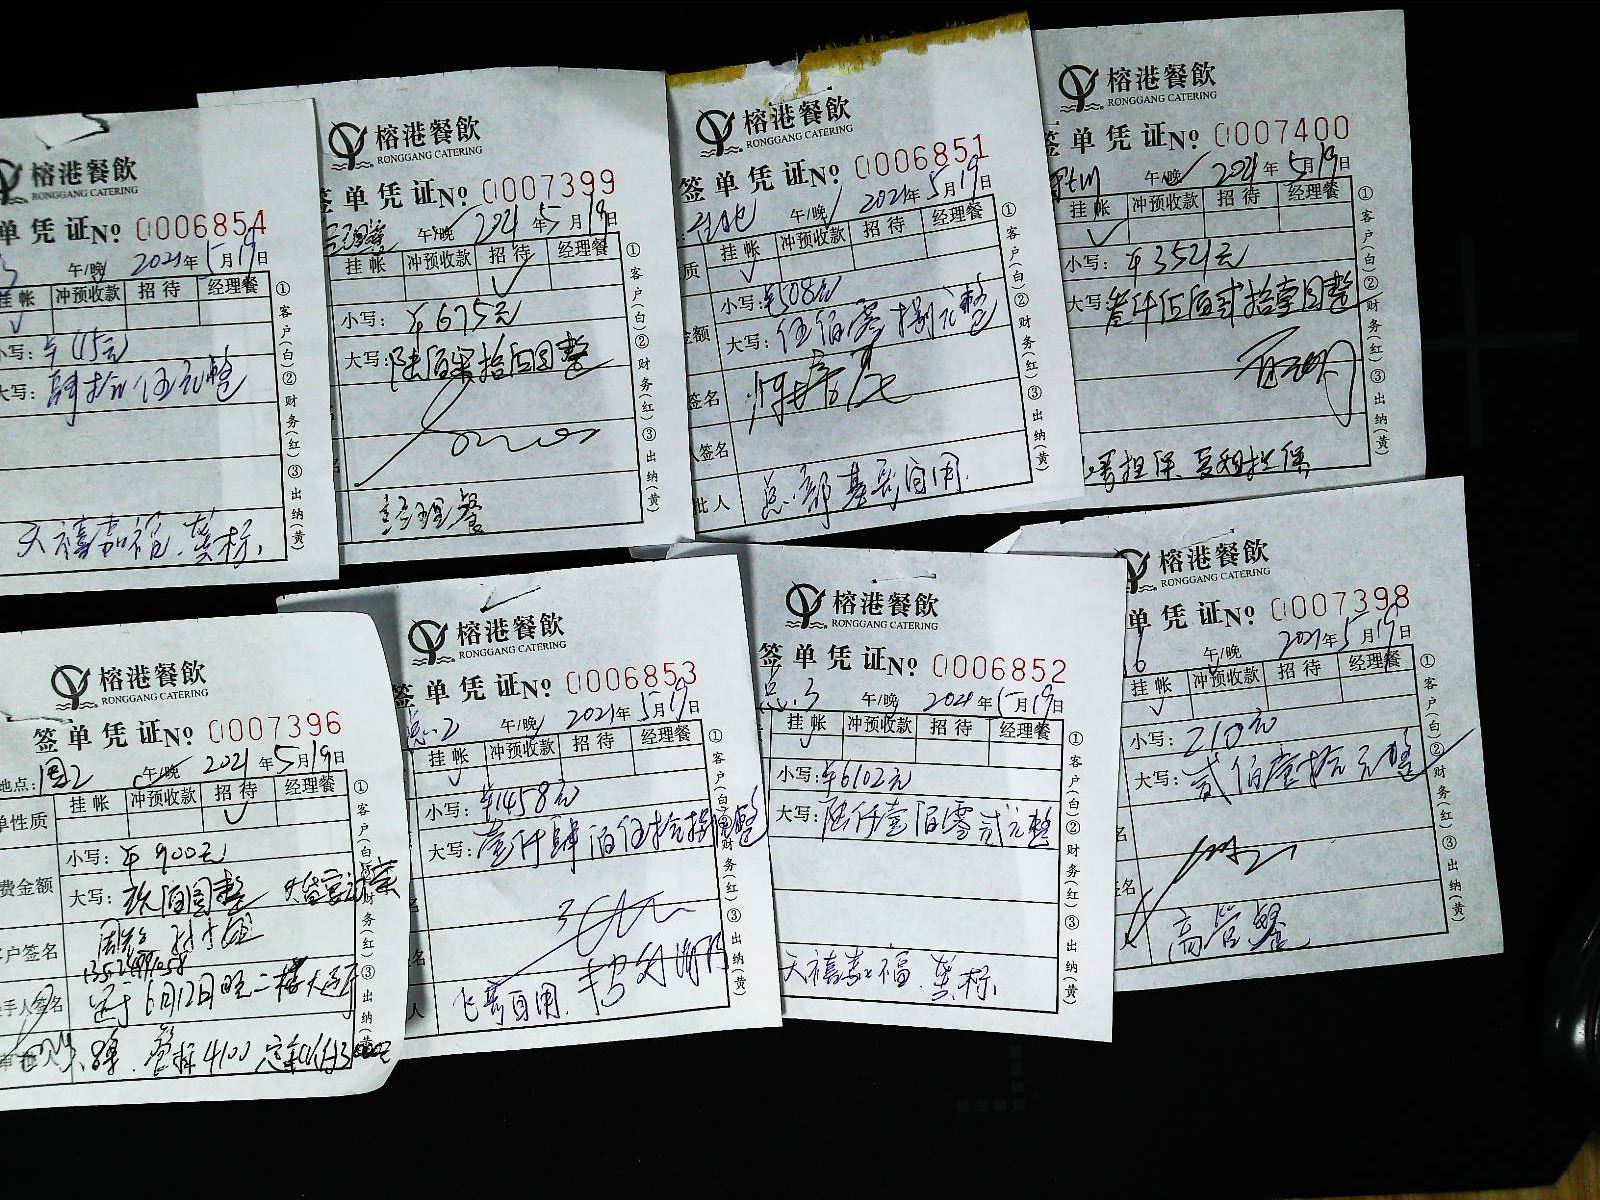 榕港餐飲
RONGGANG CATERING
单凭证No 0006854
午/晚 2021年5月19日
挂帐 冲预收款 招待 经理餐
小写：
大写：肆拾伍元整
天禧嘉福
①客户(白)②财务(红)③出纳(黄)
榕港餐飲
RONGGANG CATERING
签单凭证No 0007399
经理餐 午/晚 2021年5月19日
挂帐 冲预收款 招待 经理餐
小写：￥675元
大写：陆佰柒拾伍圆整
经理餐
①客户(白)②财务(红)③出纳(黄)
榕港餐飲
RONGGANG CATERING
签单凭证No 0006851
午/晚 2021年5月19日
质 挂帐 冲预收款 招待 经理餐
金额 小写：￥508元
大写：伍佰零捌元整
签名
人签名
批人 总部 自用
①客户(白)②财务(红)③出纳(黄)
榕港餐飲
RONGGANG CATERING
签单凭证No 0007400
午/晚 2021年5月19日
挂帐 冲预收款 招待 经理餐
小写：￥3521元
大写：叁仟伍佰贰拾壹圆整
担保
①客户(白)②财务(红)③出纳(黄)
榕港餐飲
RONGGANG CATERING
签单凭证No 0007396
地点：国2 午/晚 2021年5月19日
单性质 挂帐 冲预收款 招待 经理餐
费金额 小写：￥900元
大写：玖佰圆整
客户签名
手人签名 6月12日晚二楼大厅
审批人 4100
①客户(白)②财务(红)③出纳(黄)
榕港餐飲
RONGGANG CATERING
签单凭证No 0006853
总2 午/晚 2021年5月19日
挂帐 冲预收款 招待 经理餐
小写：￥1458元
大写：壹仟肆佰伍拾捌圆整
名
人 自用
①客户(白)②财务(红)③出纳(黄)
榕港餐飲
RONGGANG CATERING
签单凭证No 0006852
总.3 午/晚 2021年5月19日
挂帐 冲预收款 招待 经理餐
小写：￥6102元
大写：陆仟壹佰零贰元整
天禧嘉福
①客户(白)②财务(红)③出纳(黄)
榕港餐飲
RONGGANG CATERING
单凭证No 0007398
6 午/晚 2021年5月19日
挂帐 冲预收款 招待 经理餐
小写：210元
大写：贰佰壹拾元整
名
签名
高管餐
①客户(白)②财务(红)③出纳(黄)